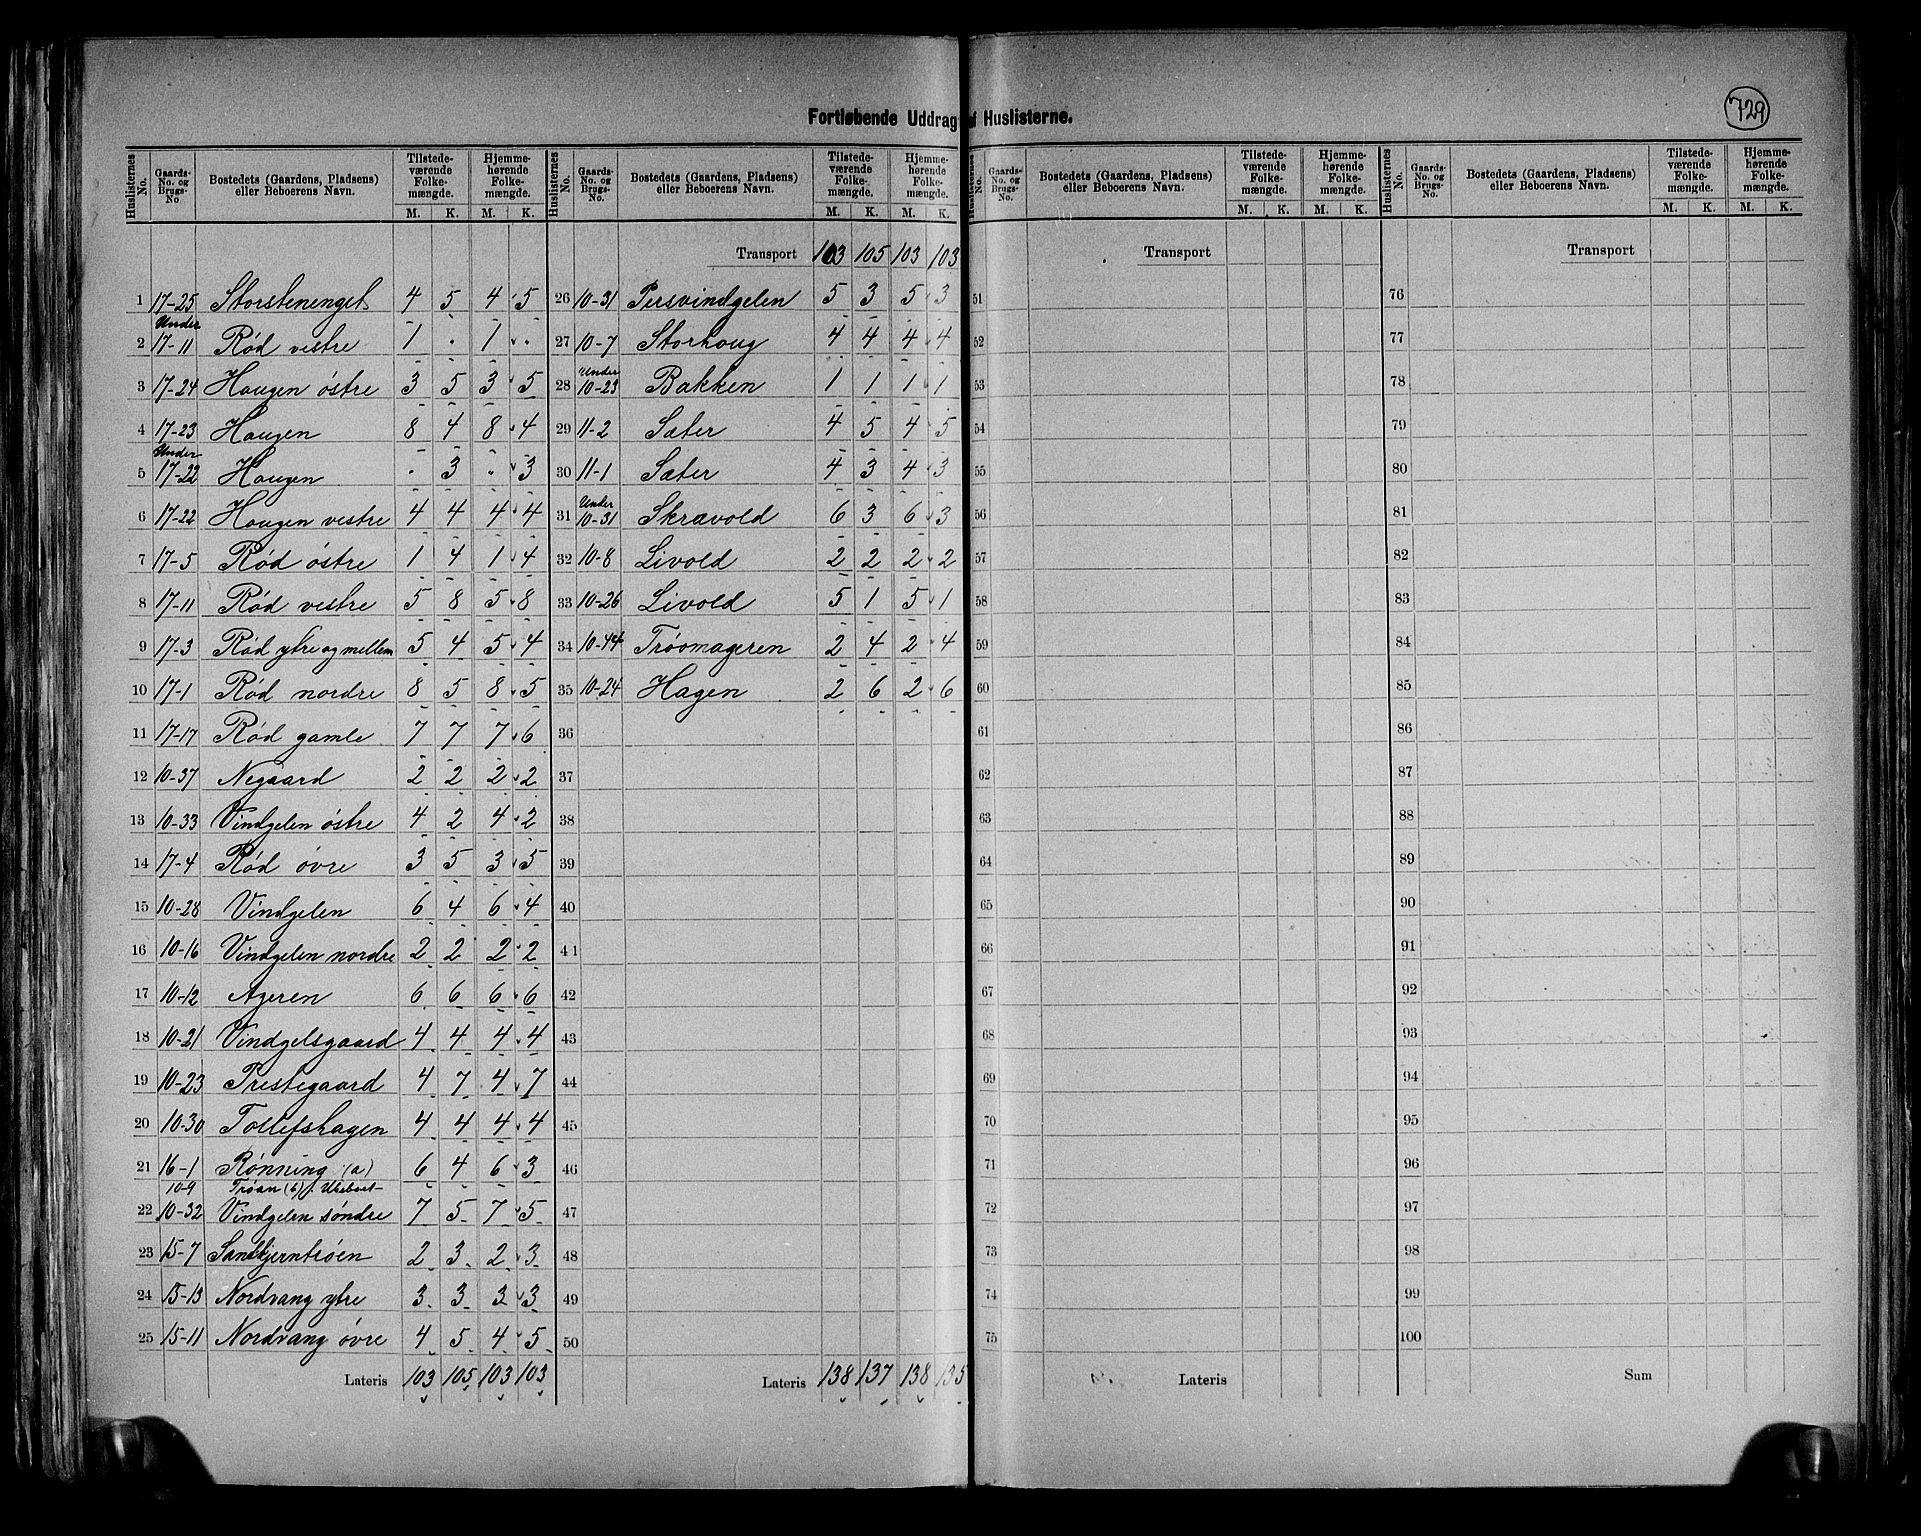 729
Fortløbende Uddrag af Huslisterne.
Huslisternes No. | Gaards-No. og Brugs-No. | Bostedets (Gaardens, Pladsens) eller Beboerens Navn. | Tilstede-værende Folke-mængde. M. K. | Hjemme-hørende Folke-mængde. M. K.
1 17-25 Storstenenget 4 5 4 5
2 Under 17-11 Rød vestre 1 . 1 .
3 17-24 Haugen østre 3 5 3 5
4 17-23 Haugen 8 4 8 4
5 Under 17-22 Haugen . 3 . 3
6 17-22 Haugen vestre 4 4 4 4
7 17-5 Rød østre 1 4 1 4
8 17-11 Rød vestre 5 8 5 8
9 17-3 Rød ytre og mellem 5 4 5 4
10 17-1 Rød nordre 8 5 8 5
11 17-17 Rød gamle 7 7 7 6
12 10-37 Negaard 2 2 2 2
13 10-33 Vindgelen østre 4 2 4 2
14 17-4 Rød øvre 3 5 3 5
15 10-28 Vindgelen 6 4 6 4
16 10-16 Vindgelen nordre 2 2 2 2
17 10-12 Ageren 6 6 6 6
18 10-21 Vindgelsgaard 4 4 4 4
19 10-23 Prestegaard 4 7 4 7
20 10-30 Tollefshagen 4 4 4 4
21 16-1 Rønning (a) 6 4 6 3
10-9 Trøan (b) f. Ubeboet
22 10-32 Vindgelen søndre 7 5 7 5
23 15-7 Sandtjerntrøen 2 3 2 3
24 15-13 Nordvang ytre 3 3 3 3
25 15-11 Nordvang øvre 4 5 4 5
Lateris 103 105 103 103
Huslisternes No. | Gaards-No. og Brugs-No. | Bostedets (Gaardens, Pladsens) eller Beboerens Navn. | Tilstede-værende Folke-mængde. M. K. | Hjemme-hørende Folke-mængde. M. K.
Transport 103 105 103 103
26 10-31 Persvindgelen 5 3 5 3
27 10-7 Storhoug 4 4 4 4
28 Under 10-23 Bakken 1 1 1 1
29 11-2 Sæter 4 5 4 5
30 11-1 Sæter 4 3 4 3
31 Under 10-31 Skravold 6 3 6 3
32 10-8 Livold 2 2 2 2
33 10-26 Livold 5 1 5 1
34 10-44 Trøomageren 2 4 2 4
35 10-24 Hagen 2 6 2 6
36
37
38
39
40
41
42
43
44
45
46
47
48
49
50
Lateris 138 137 138 135
Huslisternes No. | Gaards-No. og Brugs-No. | Bostedets (Gaardens, Pladsens) eller Beboerens Navn. | Tilstede-værende Folke-mængde. M. K. | Hjemme-hørende Folke-mængde. M. K.
Transport
51
52
53
54
55
56
57
58
59
60
61
62
63
64
65
66
67
68
69
70
71
72
73
74
75
Lateris
Huslisternes No. | Gaards-No. og Brugs-No. | Bostedets (Gaardens, Pladsens) eller Beboerens Navn. | Tilstede-værende Folke-mængde. M. K. | Hjemme-hørende Folke-mængde. M. K.
Transport
76
77
78
79
80
81
82
83
84
85
86
87
88
89
90
91
92
93
94
95
96
97
98
99
100
Sum